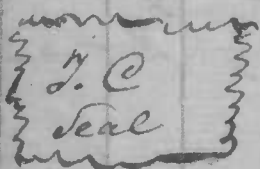 T. C
Seal